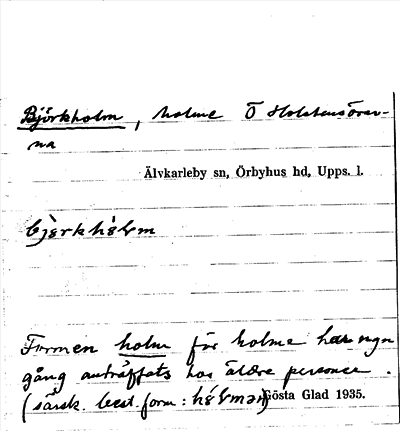 Björkholm, holme Ö Holstensörar-
na
Älvkarleby sn, Örbyhus hd, Upps. l.
Formen holm för holme har ngn
gång anträffats hos äldre personer.
(särsk. best. form:
Gösta Glad 1935.